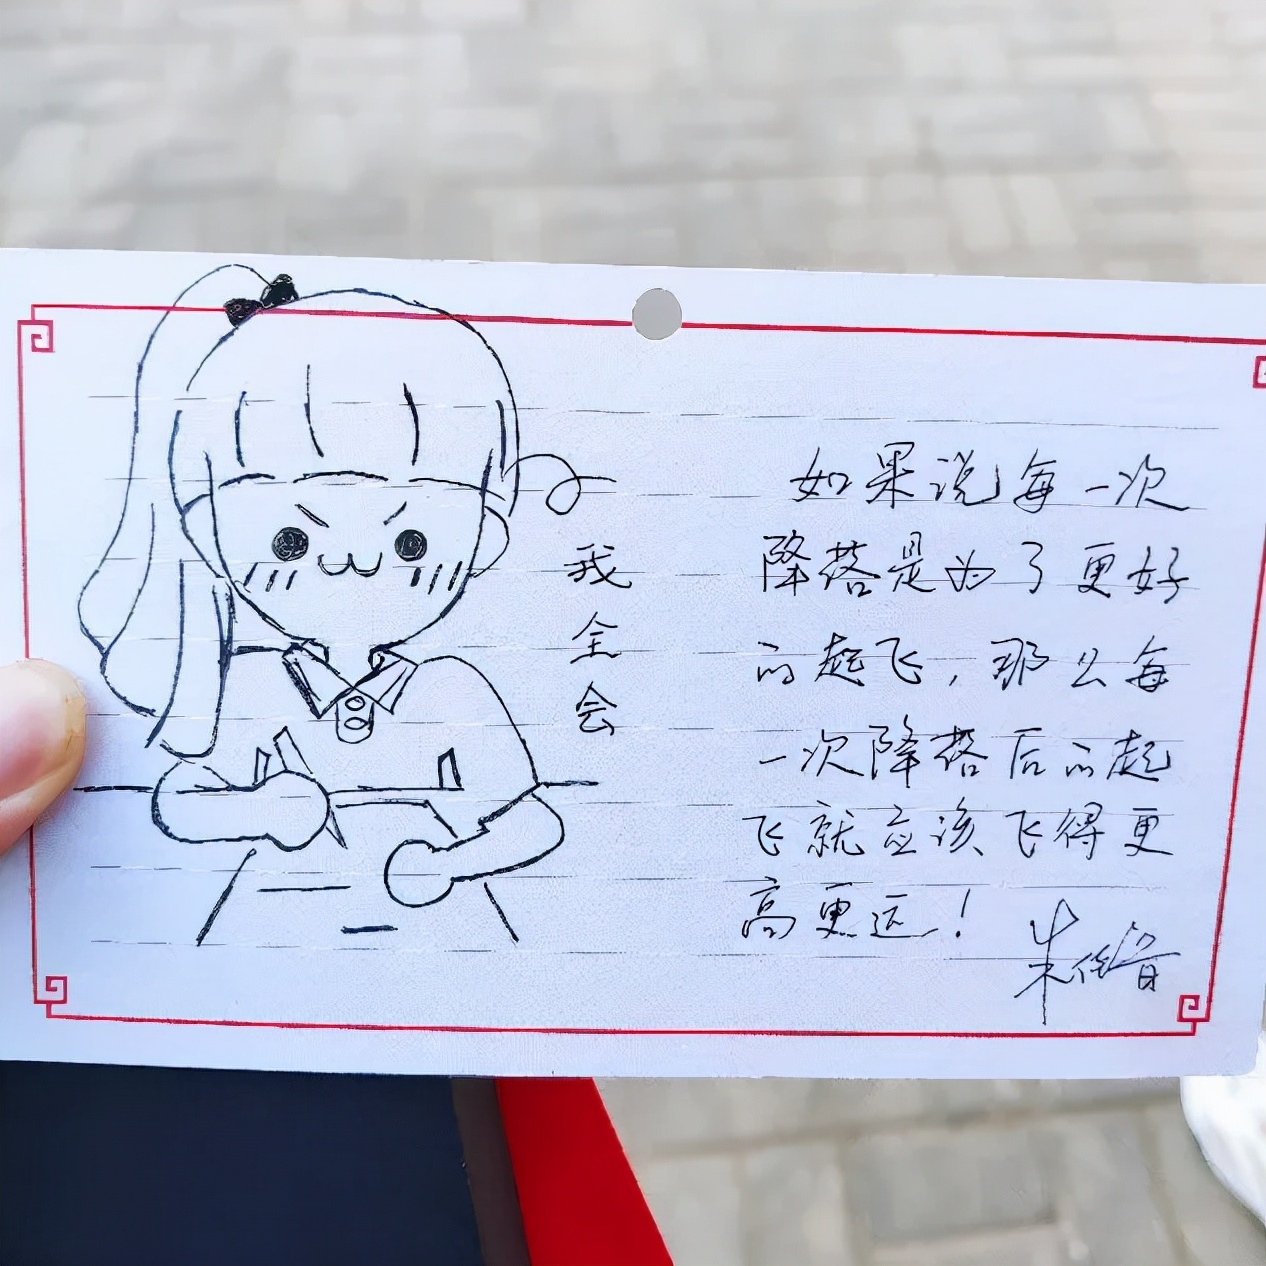 我全会
如果说每一次
降落是为了更好
的起飞，那么每
一次降落后的起
飞就应该飞得更
高更远！